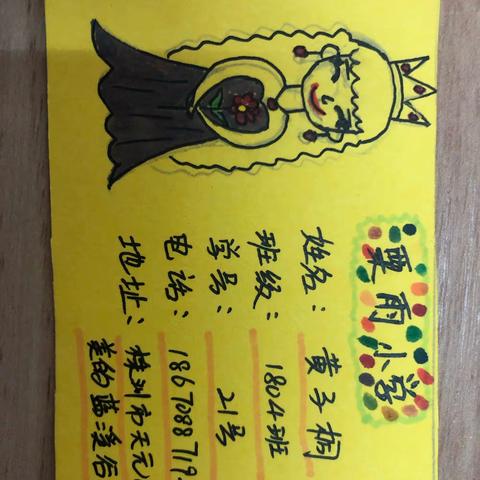 栗雨小学
姓名：黄子桐
班级：1804班
学号：21号
电话：1867088719
地址：株洲市天元
美的蓝溪谷